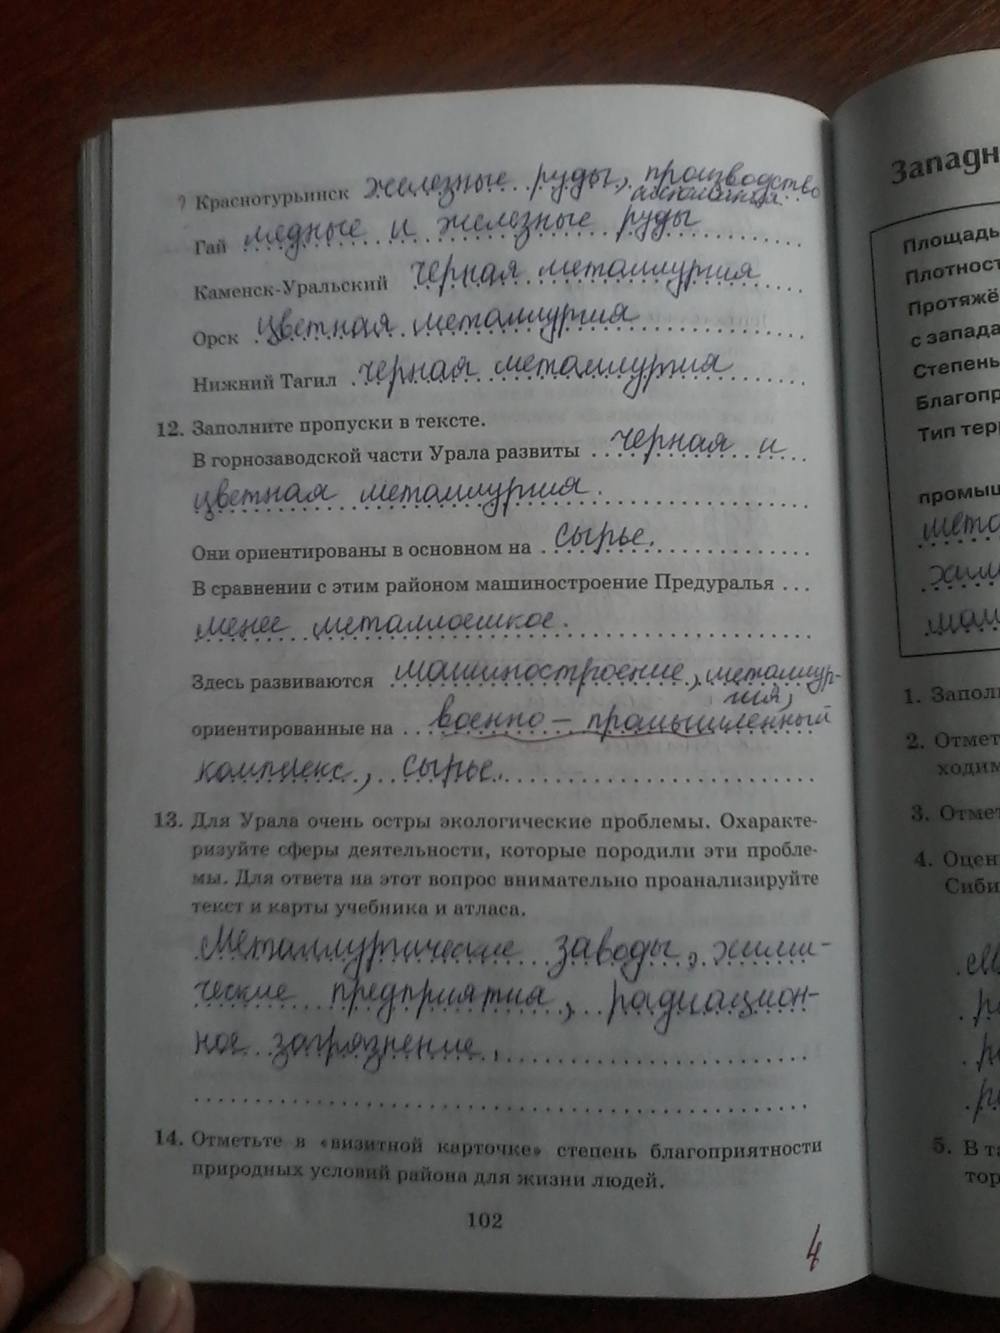 ? Краснотурьинск железные руды, производство
алюминия
Гай медные и железные руды
Каменск-Уральский черная металлургия
Орск цветная металлургия
Нижний Тагил черная металлургия
12. Заполните пропуски в тексте.
В горнозаводской части Урала развиты черная и
цветная металлургия.
Они ориентированы в основном на сырье.
В сравнении с этим районом машиностроение Предуралья ...
менее металлоемкое.
Здесь развиваются машиностроение, металлур-
гия,
ориентированные на военно-промышленный
комплекс, сырье.
13. Для Урала очень остры экологические проблемы. Охаракте-
ризуйте сферы деятельности, которые породили эти пробле-
мы. Для ответа на этот вопрос внимательно проанализируйте
текст и карты учебника и атласа.
Металлургические заводы, хими-
ческие предприятия, радиацион-
ное загрязнение.
14. Отметьте в «визитной карточке» степень благоприятности
природных условий района для жизни людей.
102
4
Западн
Площадь
Плотност
Протяжё
с запада
Степень
Благопр
Тип тер
промыш
мета
хим
маш
1. Запол
2. Отмет
ходим
3. Отме
4. Оцен
Сиби
5. В та
тор